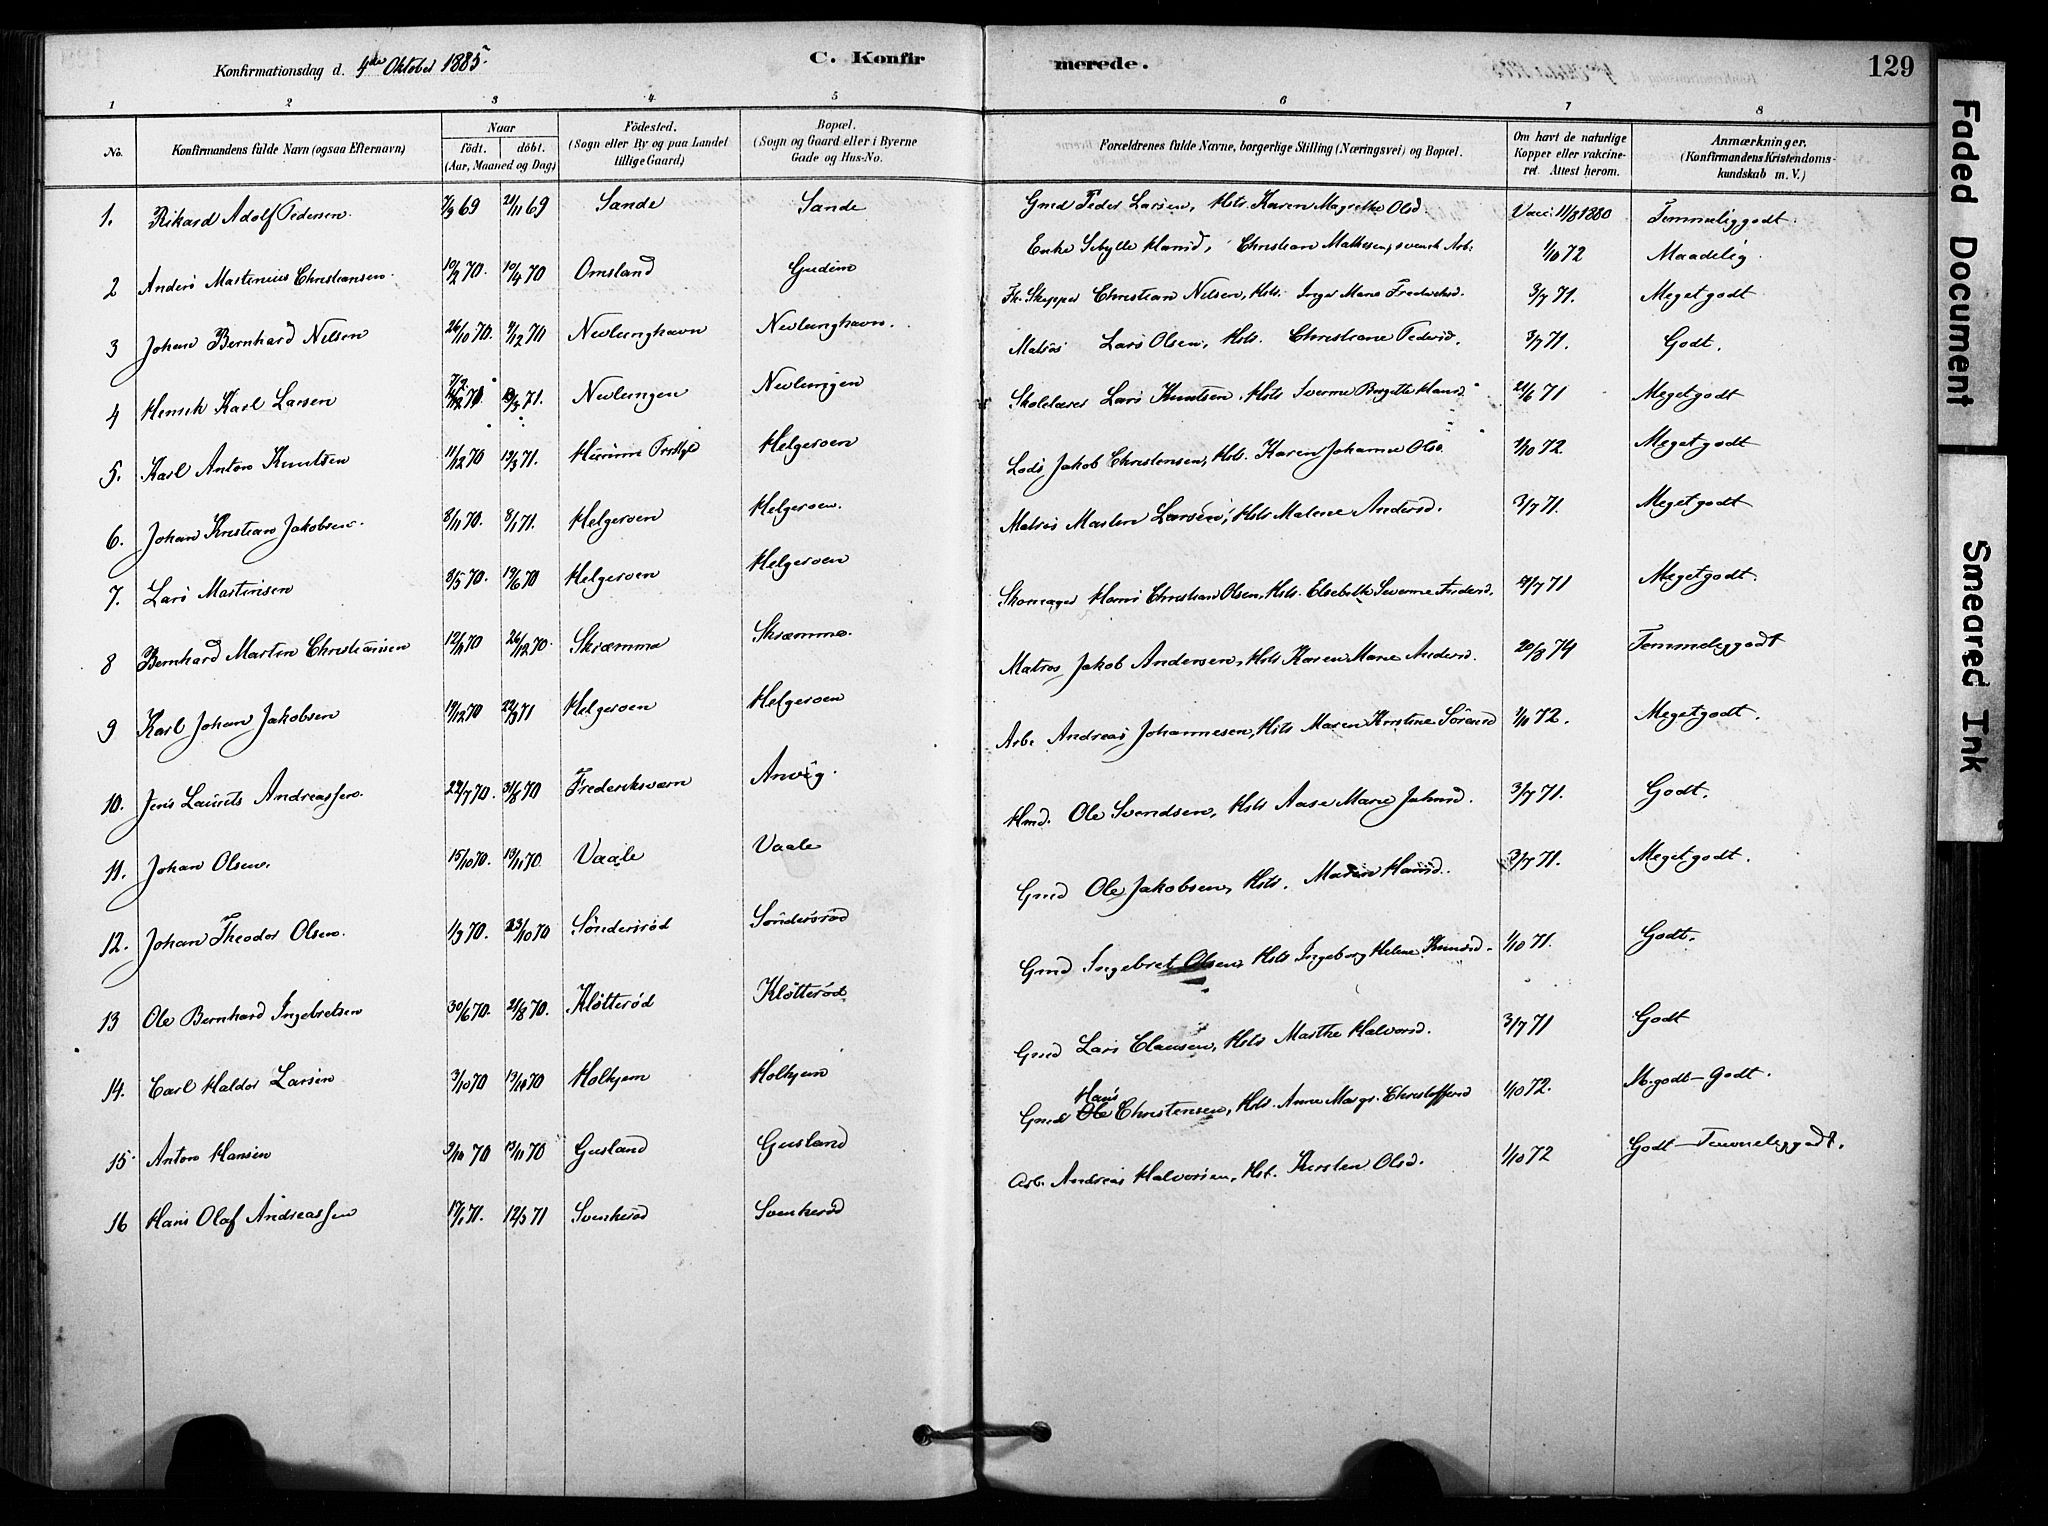 Konfirmationsdag d. 4de Oktober 1885.
C. Konfirmerede.
129
1 2 3 4 5 6 7 8
No.
Konfirmandens fulde Navn (ogsaa Efternavn)
Naar
födt. döbt.
(Aar, Maaned og Dag)
Födested.
(Sogn eller By og paa Landet
tillige Gaard)
Bopæl.
(Sogn og Gaard eller i Byerne
Gade og Hus-No.
Forældrenes fulde Navne, borgerlige Stilling (Næringsvei) og Bopæl.
Om havt de naturlige
Kopper eller vakcine-
ret. Attest herom.
Anmærkninger.
(Konfirmandens Kristendoms-
kundskab m. V.)
1. Rikard Adolf Pedersen. 7/9 69 21/11 69 Sande Sande Gmd Peder Larsen, Hst. Karen Magrethe Olsd. Vacc. 11/8 1880 Temmeliggodt.
2 Anders Martinius Christiansen. 10/2 70. 10/4 70 Omsland Gudim Enke Sibylle Hansd, Christian Mathesen, svensk Arb. 1/10 72 Maadelig.
3 Johan Bernhard Nilsen 26/10 70. 9/12 70 Nevlunghavn Nevlunghavn. Fh. Skipper Christian Nilsen, Hst. Inger Marie Frederiksd. 3/7 71. Megetgodt
4 Henrik Karl Larsen 71. Nevlungen Nevlungen Matros Lars Olsen, Hst. Christiane Pedersd. 3/7 71. Godt.
5. Karl Anton Knutsen 11/12 70 19/3 71. Helgeroen Skolelærer Lars Knutsen, Hst. Hansd 21/6 71 Megetgodt
6. Johan Kristian Jakobsen. 8/11 70. 8/1 71. Helgeroen Helgeroen. Lods Jakob Christensen, Hst. Karen Johanne Olsd 1/10 72. Megetgodt
7. Lars Martinsen 8/5 70. 19/6 70 Helgeroen Helgeroen Matros Martin Larsen, Hst. Malene Andersd. 3/7 71. Megetgodt
8 Bernhard Martin Christiansen 12/11 70 26/12 70. Skræmma Skræmma. Skomager Hans Christian Olsen, Hst. Elsebethe Severine 71 Megetgodt.
9 Karl Johan Jakobsen 19/12 70 22/3 71 Helgeroen Helgeroen Matros Jakob Andersen, Hst. Karen Marie Andersd. 20/8 74 Temmeliggodt
10. Jens Laurits Andreassen 29/7 70. 31/8 70 Frederiksværn Anvig. Arb. Andreas Johannesen, Hst. Maren Kirstine Sörensd 72. Megetgodt.
11. Johan Olsen. 15/10 70. 13/11 70 Vaale Vaale Hmd. Ole Svendsen, Hst. Aase Marie Johnsd. 3/7 71. Godt.
12. Johan Theodor Olsen. 1/9 70. 23/10 70 Söndersröd Söndersröd Gmd Ole Jakobsen, Hst. Maren Hansd. 3/7 71. Megetgodt.
13 Ole Bernhard Ingebretsen 30/6 70. 21/8 70. Klötteröd Klötteröd Gmd Ingebret Olsen, Hst. Ingeborg Helene 1/10 71. Godt.
14. Carl Haldor Larsen 3/10 70 Holhjem Holhjem Gmd Lars Clausen, Hst. Marthe Halvorsd. 3/7 71 Godt
15. Anton Hansen 70 13/11 70 Gusland Gusland Gmd Ole Hans Christensen, Hst. Anne Margr. Christoffersd 1/10 72. M.godt–Godt.
16 Hans Olaf Andreassen 17/1 71. 12/3 71 Svenkeröd Svenkeröd Arb. Andreas Halvorsen, Hst. Kirsten Olsd. 1/10 72 Godt–Temmeliggodt.
Faded Document
Smeared Ink